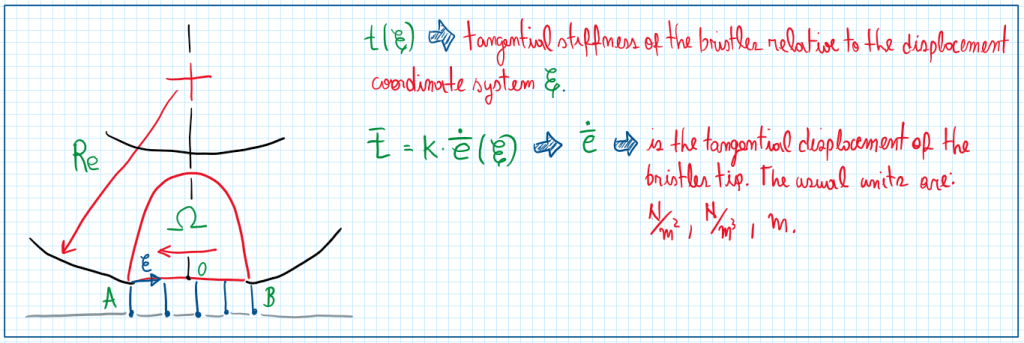 t(ξ) ⇒ tangential stiffness of the bristles relative to the displacement
coordinate system ξ.
Re
t̄ = k · ė̄(ξ) ⇒ ė̄ ⇒ is the tangential displacement of the
bristles tip. The usual units are:
Ω
N/m², N/m³, m.
ξ O
A B